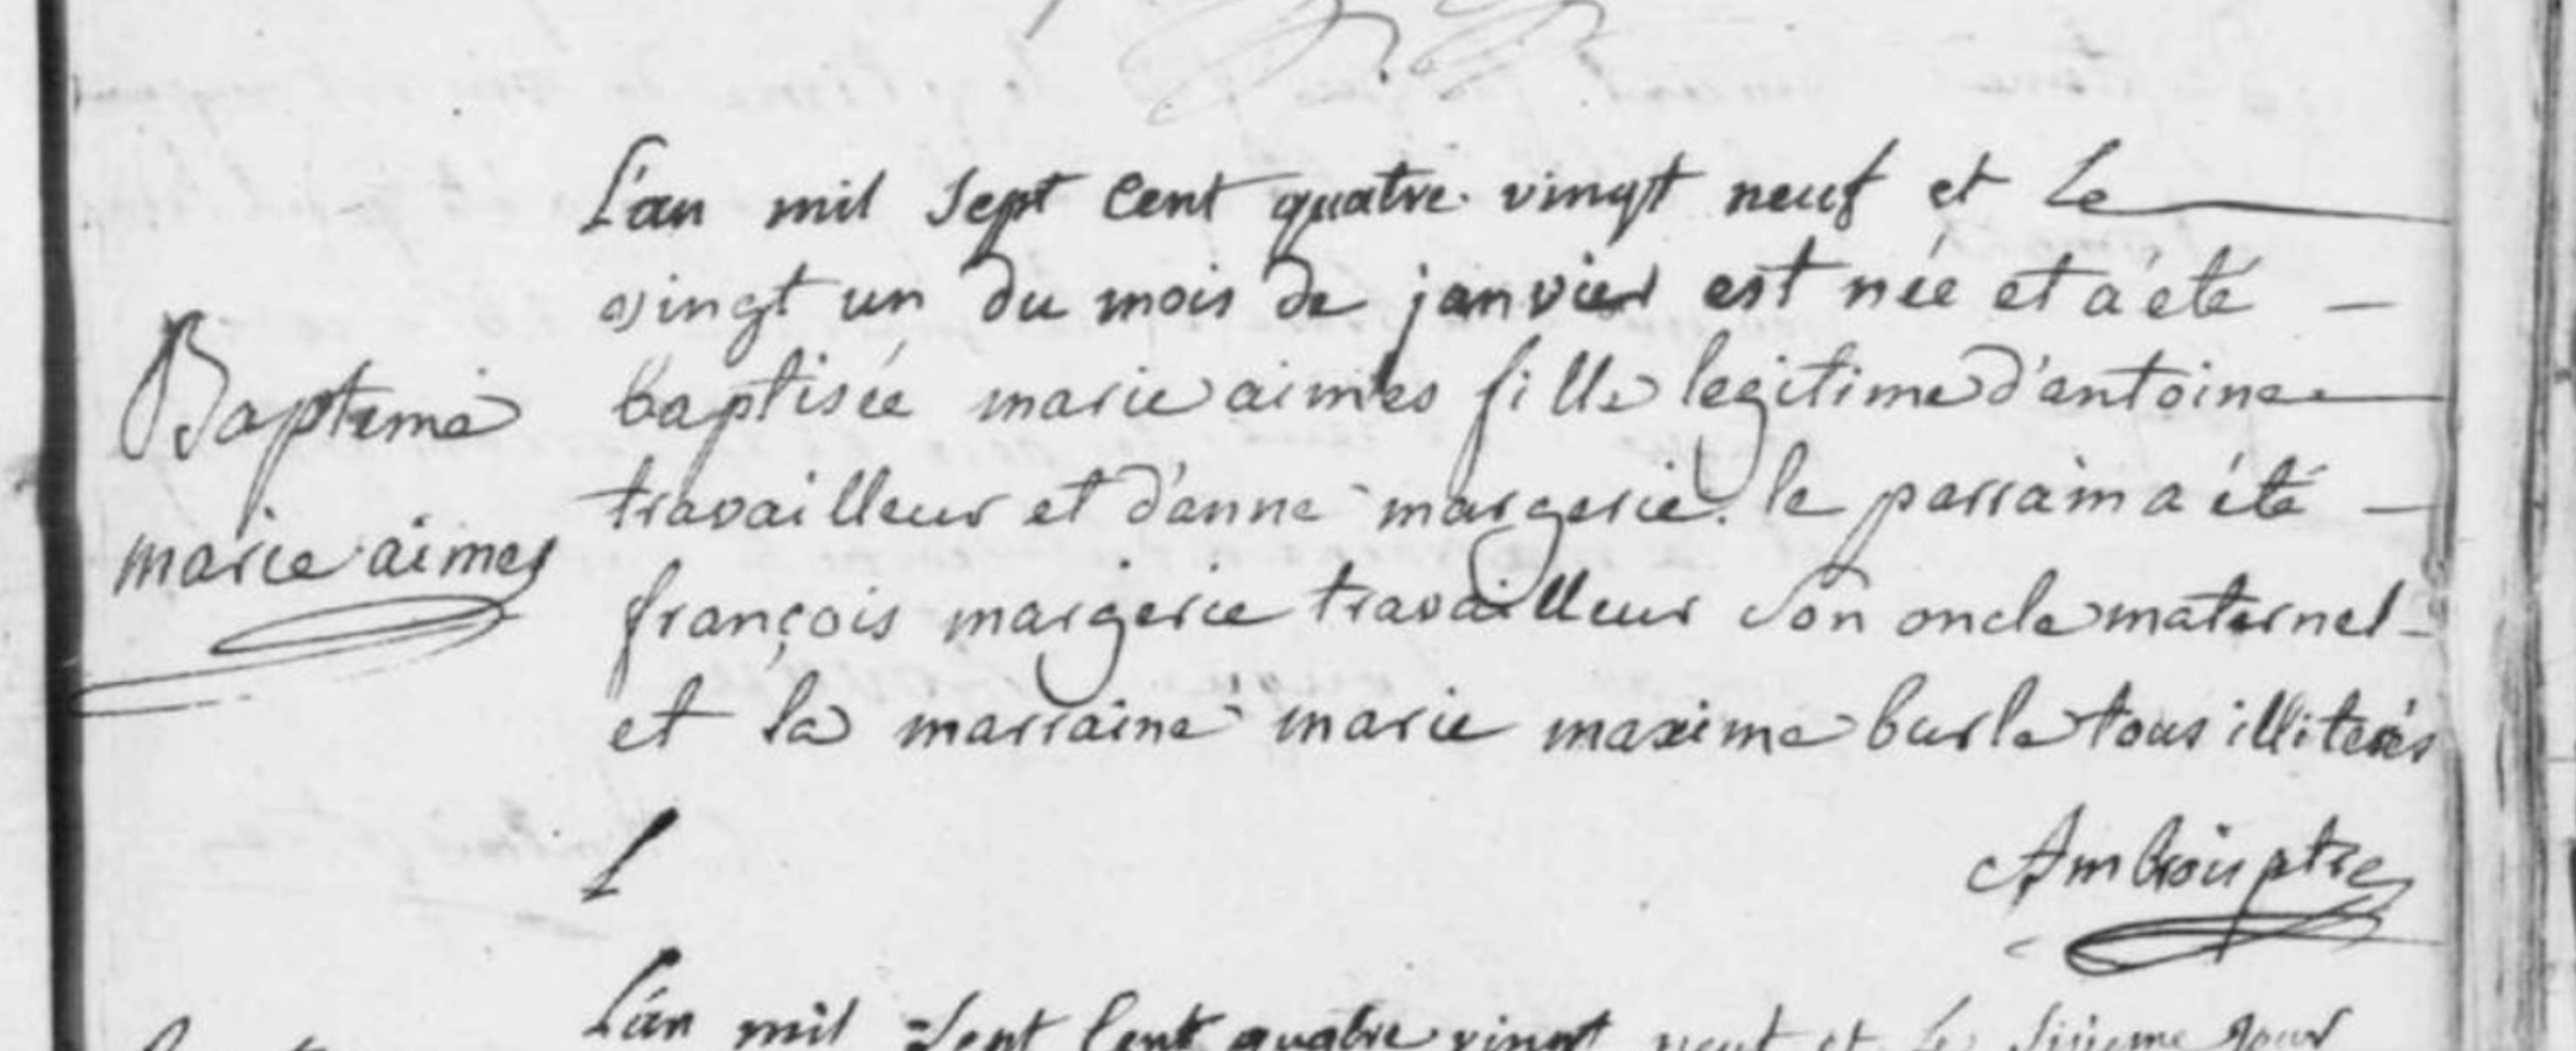 L'an mil sept cent quatre vingt neuf et le
vingt un du mois de janvier est née et a été
baptisée marie aimes fille legitime d'antoine
travailleur et d'anne margerie. le parrain a été
françois margerie travailleur son oncle maternel
et la marraine marie maxime burle tous illiterés
Bapteme
marie aimes
Ambrois ptre
L'an mil sept cent quatre vingt neuf et le sixieme jour